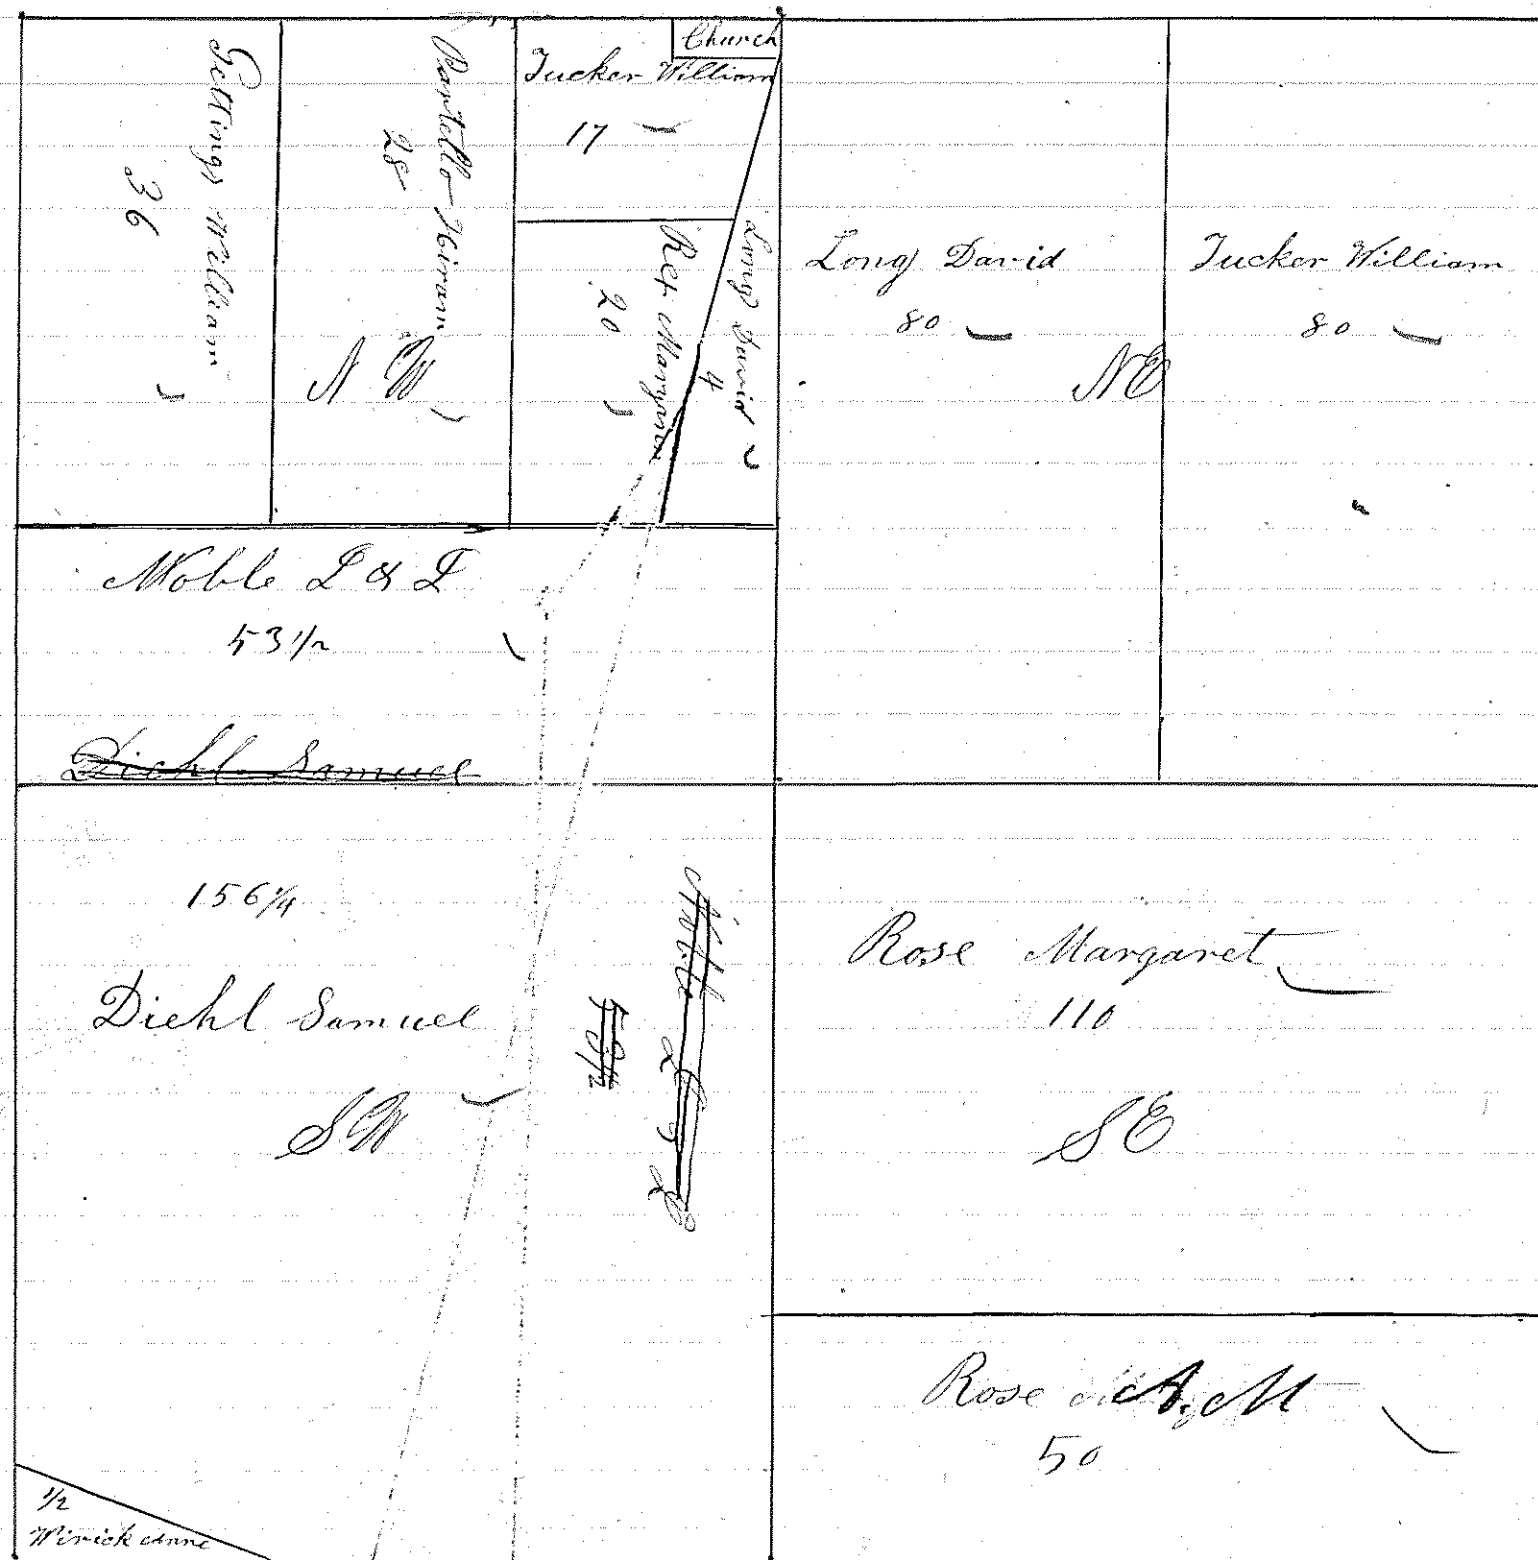 Church
Tucker William
17
Gettings William
36
Partello Hiram
28
N W
Long David
4
Rex Margaret
20
Long David
80
Tucker William
80
N E
Noble L & L
53 1/2
Diehl Samuel
156 1/4
Diehl Samuel
S W
Noble L & L
53 1/2
Rose Margaret
110
S E
Rose A. M
50
1/2
Wirick Anne